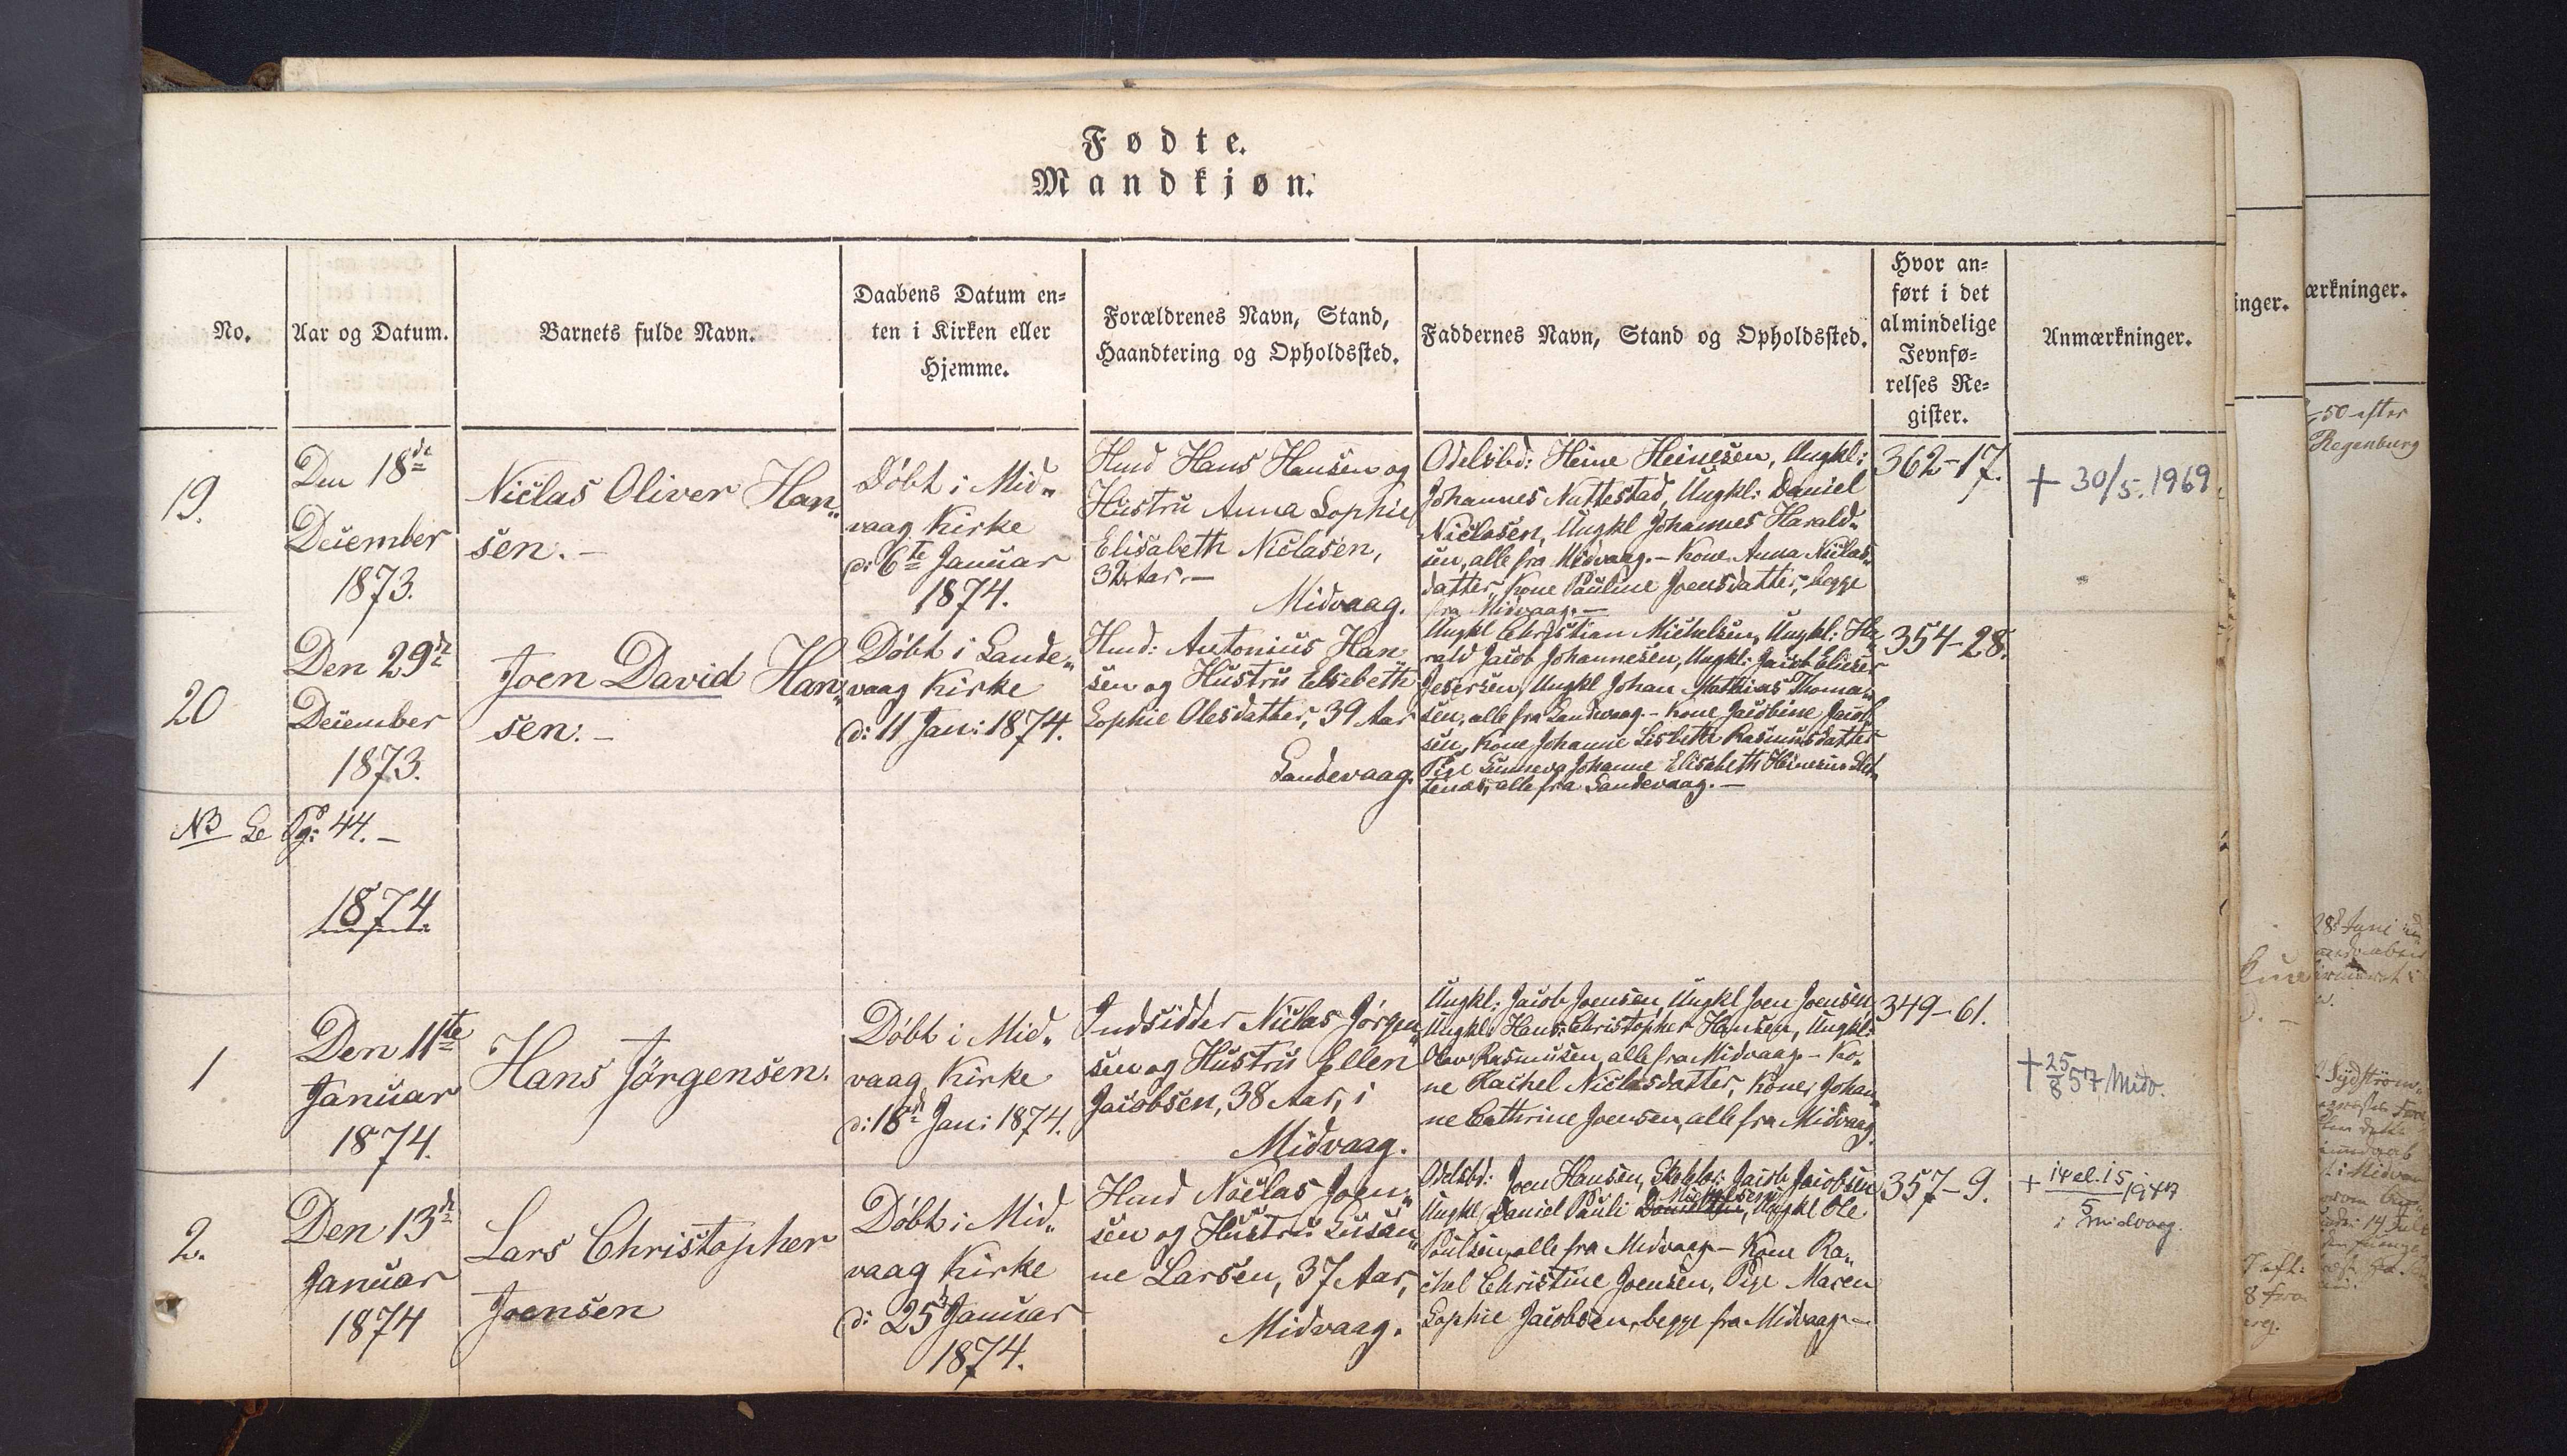 Fødte.
Mandkjøn.
No.
Aar og Datum.
Barnets fulde Navn.
Daabens Datum en=
ten i Kirken eller
Hjemme.
Forældrenes Navn, Stand,
Haandtering og Opholdssted.
Faddernes Navn, Stand og Opholdssted.
Hvor an=
ført i det
almindelige
Jevnfø=
relses Re=
gister.
Anmærkninger.
19.
Den 18de
December
1873.
Niclas Oliver Han„
sen. –
Döbt i Mid„
vaag Kirke
d: 6te Januar
1874.
Hmd Hans Hansen og
Hustru Anna Sophie
Elisabeth Niclasen,
32 Aar. –
Midvaag.
Odelsbd: Heine Heinesen, Ungkl:
Johannes Nattestad, Ungkl: Daniel
Niclasen, Ungkl Johannes Harald„
sen, alle fra Midvaag. – Kone Anna Niclas„
datter, Kone Pauline Joensdatter, begge
fra Midvaag. –
362–17.
+ 30/5. 1969.
20
Den 29de
December
1873.
Joen David Han„
sen. –
Döbt i Sande„
vaag Kirke
d: 11 Jan: 1874.
Hmd: Antonius Han„
sen og Hustru Elsebeth
Sophie Olesdatter, 39 Aar
Sandevaag.
Ungkl Christian Michelsen, Ungkl: Ha„
rald Jacob Johannesen, Ungkl: Jacob Elieser
Ungkl Johan Mathias Thoma„
sen, alle fra Sandevaag – Kone Jacobine Jacob„
sen, Kone Johanne Lisbeth Rasmusdatter
Pige Sunneva Johanne Elisabeth Heinesen
alle fra Sandevaag. –
354–28.
NB Se Pg: 44. –
1874.
1
Den 11te
Januar
1874.
Hans Jörgensen.
Döbt i Mid„
vaag Kirke
d: 18de Jan: 1874.
Indsidder Niclas Jörgen„
sen og Hustru Ellen
Jacobsen, 38 Aar, i
Midvaag.
Ungkl: Jacob Joensen, Ungkl Joen Joensen,
Ungkl: Hans Christopher Hansen, Ungkl:
Olav Rasmusen, alle fra Midvaag – Ko„
ne Rachel Niclasdatter, Kone Johan„
ne Cathrine Joensen, alle fra Midvaag.
349–61.
+ 25/8 57 Midv.
2.
Den 13de
Januar
1874
Lars Christopher
Joensen
Döbt i Mid„
vaag Kirke
d: 25 Januar
1874.
Hmd Niclas Joen„
sen og Hustru Susan„
ne Larsen, 37 Aar,
Midvaag.
Odelsbd: Joen Hansen, Jacob Jacobsen
Ungkl Daniel Pauli Danielsen, Ungkl Ole
Poulsen, alle fra Midvaag – Kone Ra„
chel Christine Joensen, Pige Maren
Sophie Jacobsen, begge fra Midvaag –
357–9.
+ 14 el. 15/5 1947
i Midvaag.
inger.
ærkninger.
50 efter
Regenburg